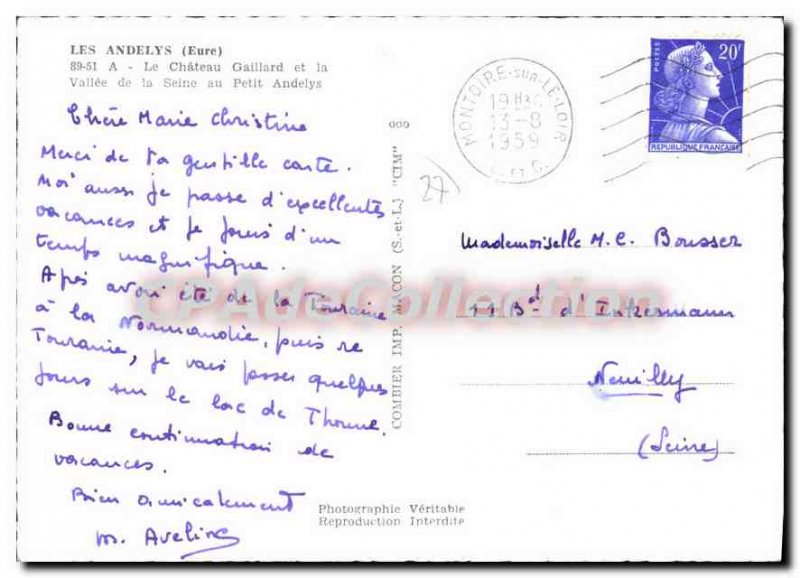 LES ANDELYS (Eure)
89-51 A - Le Château Gaillard et la
Vallée de la Seine au Petit Andelys
Chère Marie Christine
Merci de ta gentille carte.
Moi aussi je passe d'excellentes
vacances et je jouis d'un
temps magnifique.
Après avoir été de la Touraine
à la Normandie, puis re
Touraine, je vais passer quelques
jours sur le lac de Thoune.
Bonne continuation de
vacances.
Bien amicalement
M. Aveline
000
COMBIER IMP. MACON (S.-et-L.) "CIM"
Photographie Véritable
Reproduction Interdite
27)
MONTOIRE-SUR-LE-LOIR
19H30
13-8
1959
L. ET C.
POSTES
20F
REPUBLIQUE FRANÇAISE
Mademoiselle M. C. Bousser
Bd d'Inkermann
Neuilly
(Seine)
CPAdeCollection